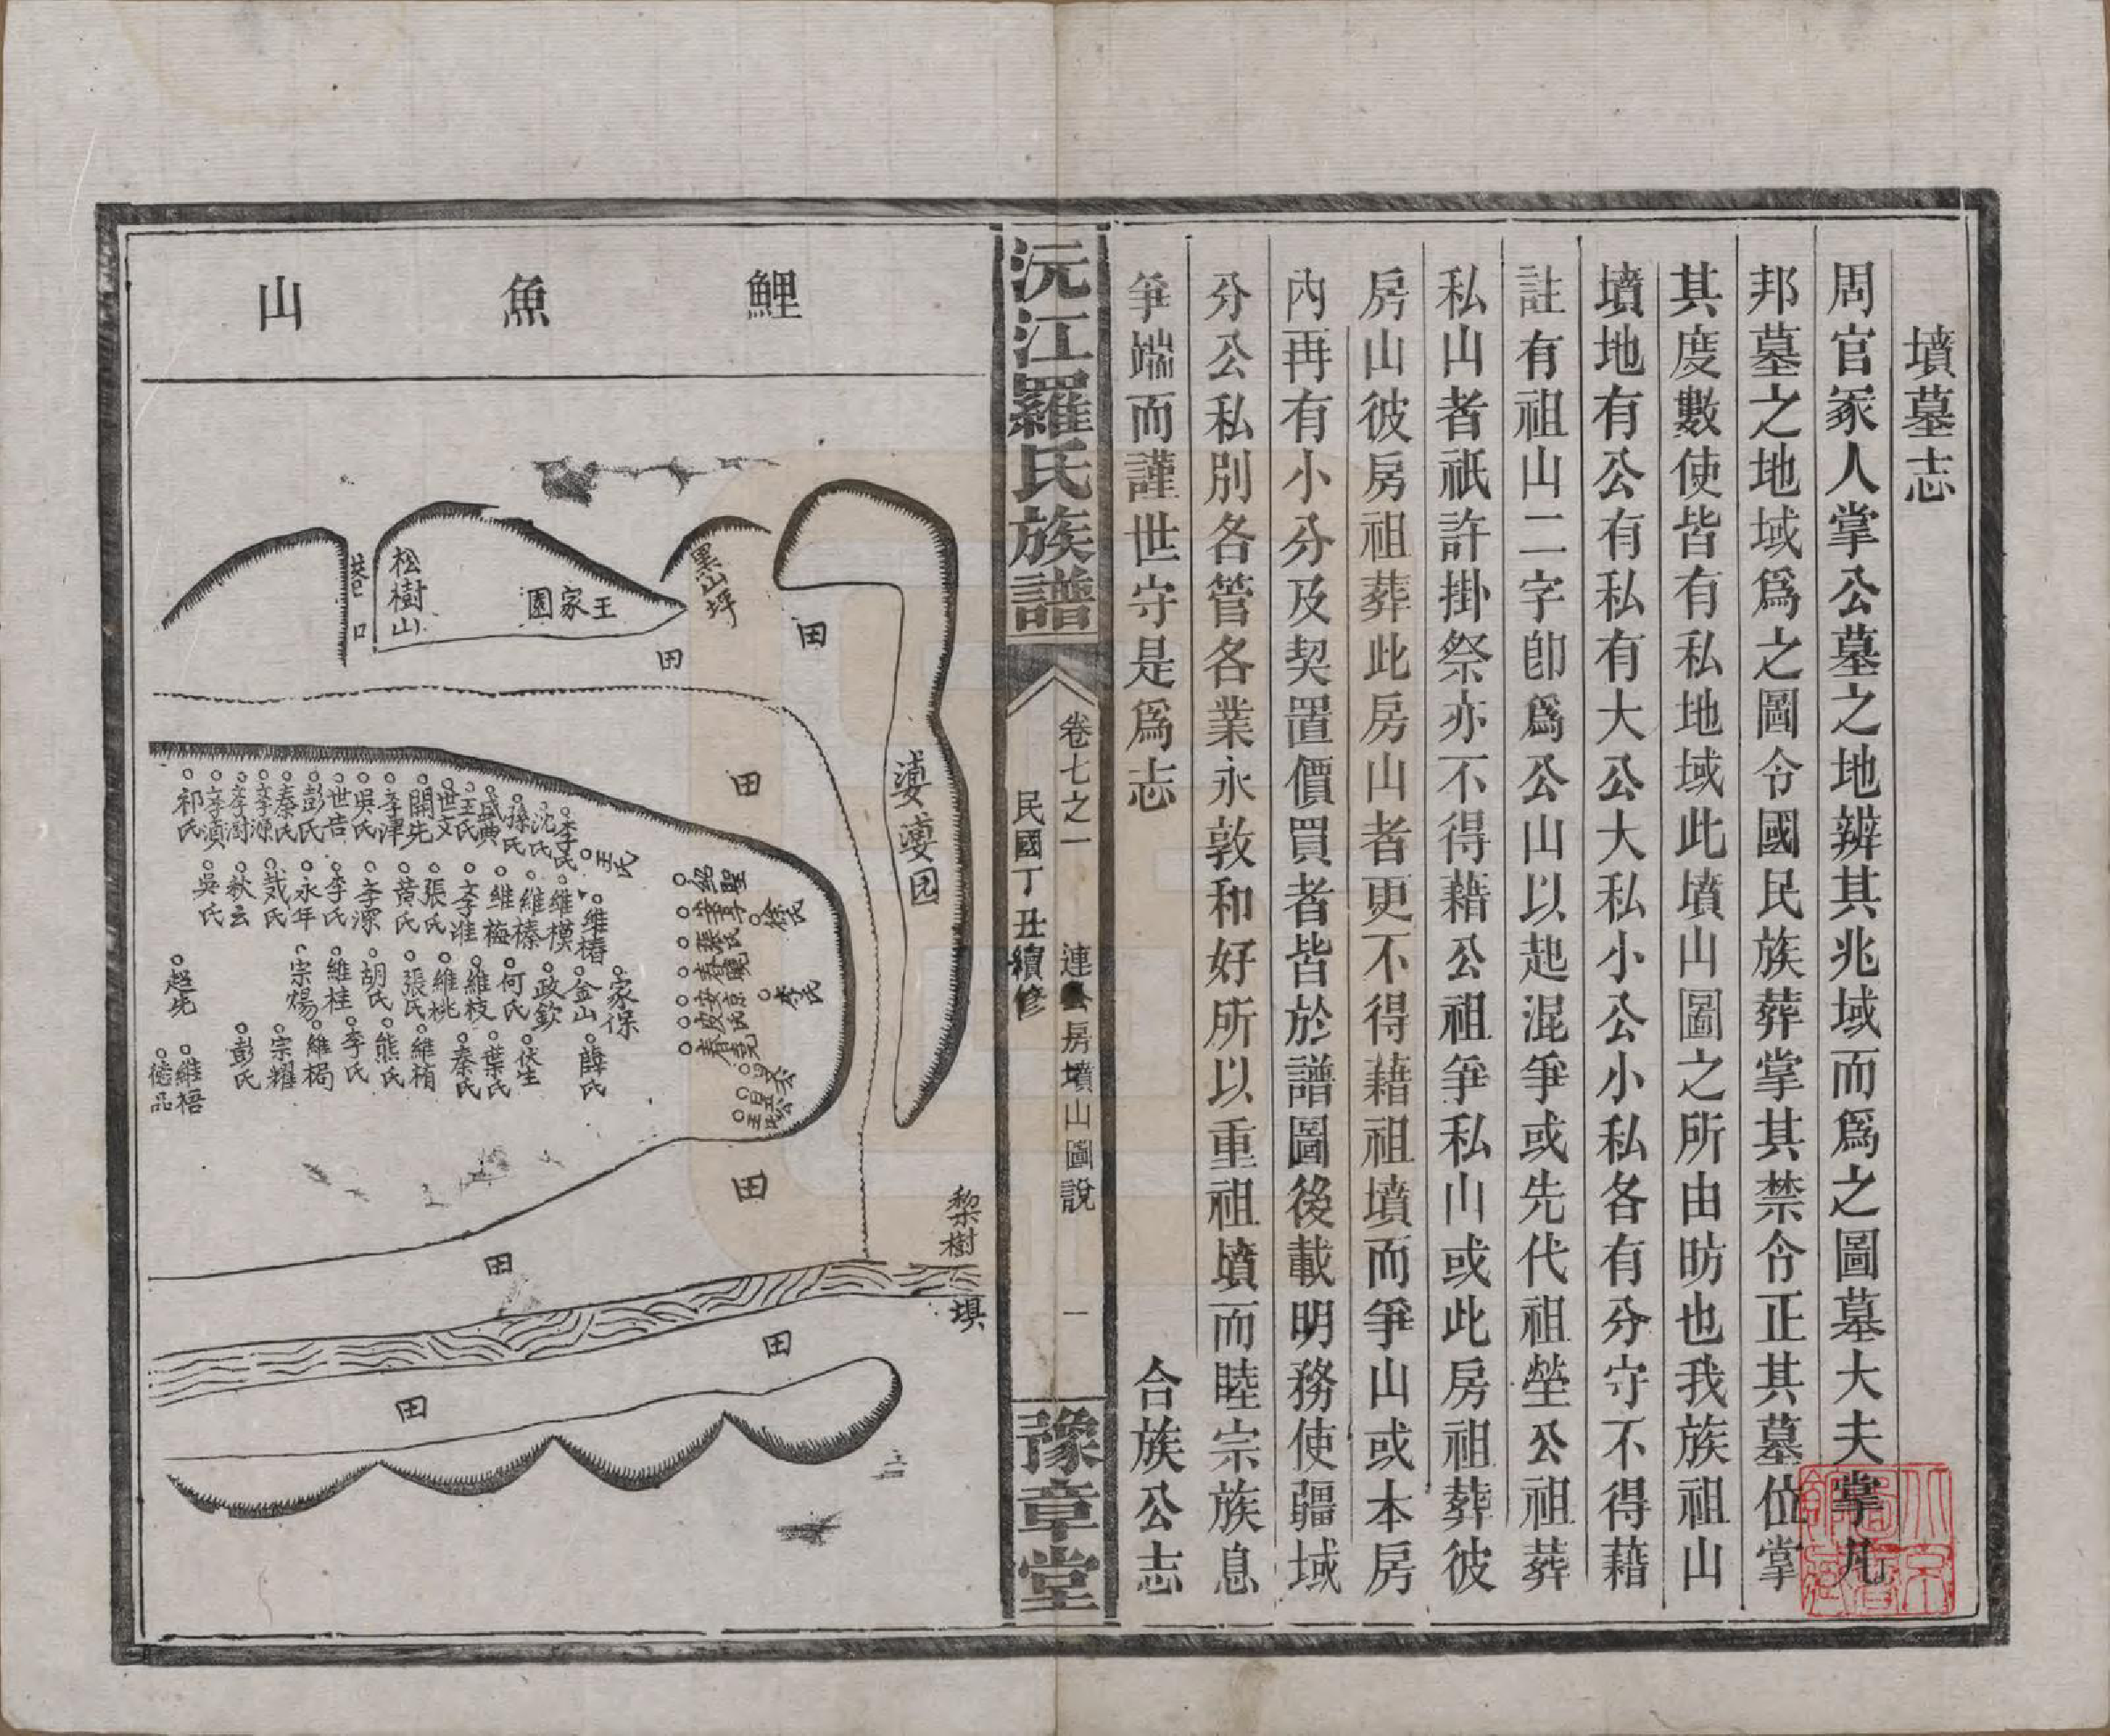 墳墓志
周官冢人掌公墓之地辨其兆域而爲之圖墓大夫掌凡
邦墓之地域爲之圖令國民族葬掌其禁令正其墓位掌
其度數使皆有私地域此墳山圖之所由昉也我族祖山
墳地有公有私有大公大私小公小私各有分守不得藉
註有祖山二字卽爲公山以起混爭或先代祖塋公祖葬
私山者祇許掛祭亦不得藉公祖爭私山或此房祖葬彼
房山彼房祖葬此房山者更不得藉祖墳而爭山或本房
內再有小分及契置價買者皆於譜圖後載明務使疆域
分公私別各管各業永敦和好所以重祖墳而睦宗族息
爭端而謹世守是爲志
合族公志
沅江羅氏族譜
卷七之一
連公房墳山圖說
一
民國丁丑續修
豫章堂
鯉魚山
黑山坪
王家園
松樹山
巷口
田
田
田
田
田
田
田
梨樹垻
祁氏
李湏
李澍
李源
秦氏
彭氏
世吉
吳氏
李澤
開先
世文
王氏
盛典
孫氏
沈氏
李氏
王氏
吳氏
秋云
戢氏
永年
李氏
李潔
黃氏
張氏
李淮
維梅
維榛
維模
維椿
超先
宗煬
維桂
胡氏
張氏
維桃
維枝
何氏
政欽
金山
家保
彭氏
宗耀
維楬
李氏
熊氏
維楕
秦氏
葉氏
伏生
薛氏
德品
維梧
徐氏
李氏